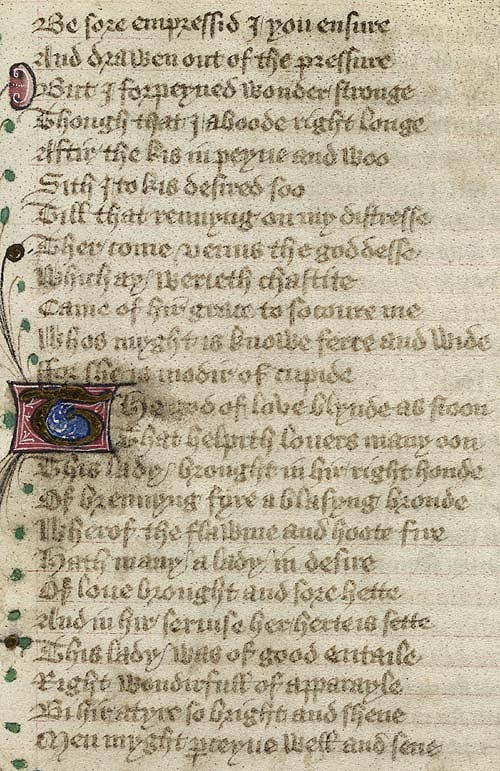 Be sore empressid I you ensure
And drawen out of the pressure
But I forpeyned wonder stronge
Though that I aboode right longe
Aftir the kis in peyne and woo
Sith I to kis desired soo
Till that rennyng on my distresse
Ther come venus the goddesse
Which ay werieth chastite
Came of hir grace to socoure me
Whos myght is knowe ferre and wide
For she is modir of cupide
The god of love blynde as stoon
That helpith louers many oon
This lady brought in hir right honde
Of brennyng fyre a blasyng bronde
Wherof the flawme and hoote fire
Hath many a lady in desire
Of loue brought and sore hette
And in hir seruise her herte is sette
This lady was of good entaile
Right wondirfull of apparayle
Bi hir atyre so bright and shene
Men myght perceyue well and sene